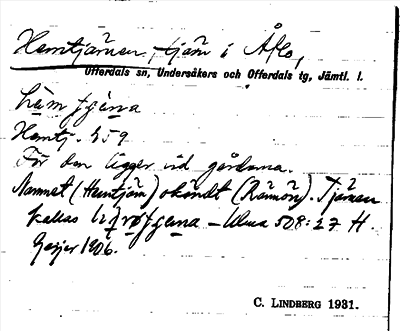 Hemtjärnen, tjärn i Åflo,
Offerdals sn, Undersåkers och Offerdals tg, Jämtl. l.
Hemtj. 459
För den ligger vid gårdarna.
Namnet (Hemtjärn) okändt (Rännön). Tjärnen
kallas – Ulma 508:27 H.
Geijer 1906.
C. LINDBERG 1931.